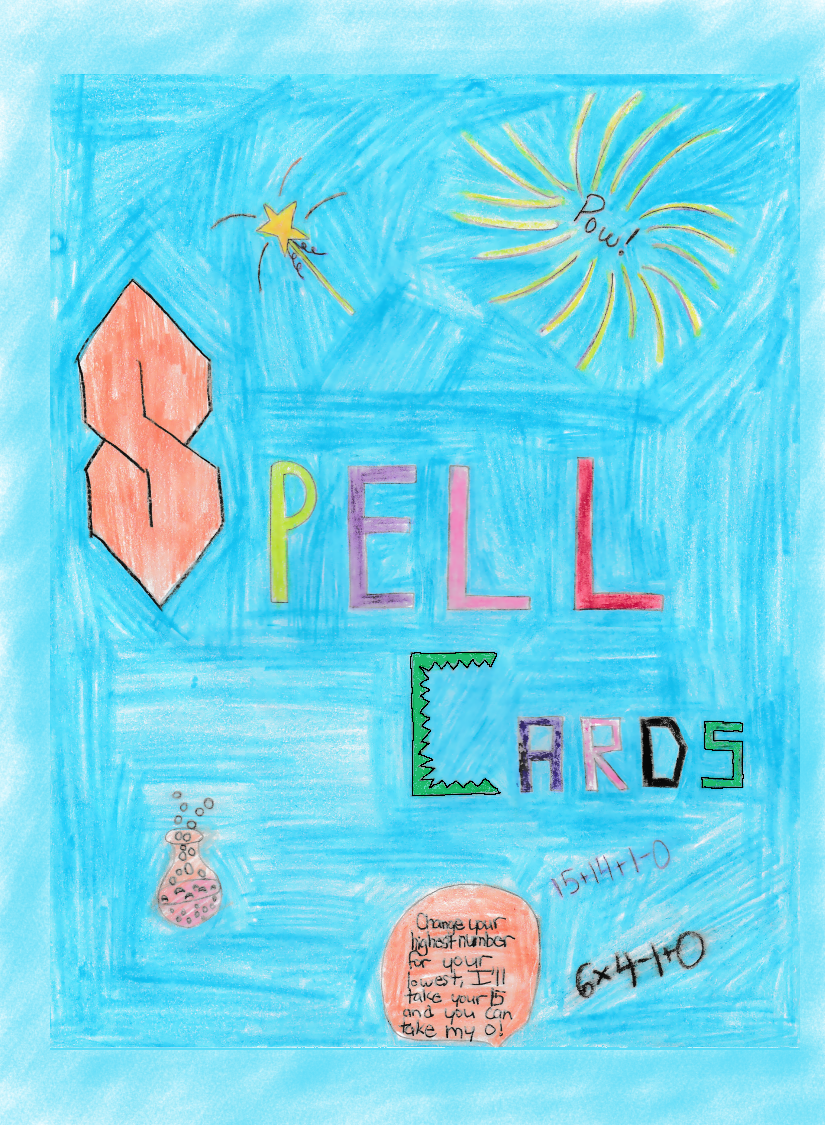 Pow!
SPELL
CARDS
15+14+1-0
6x4-1+0
Change your
highest number
for your
lowest, I'll
take your 15
and you can
take my 0!